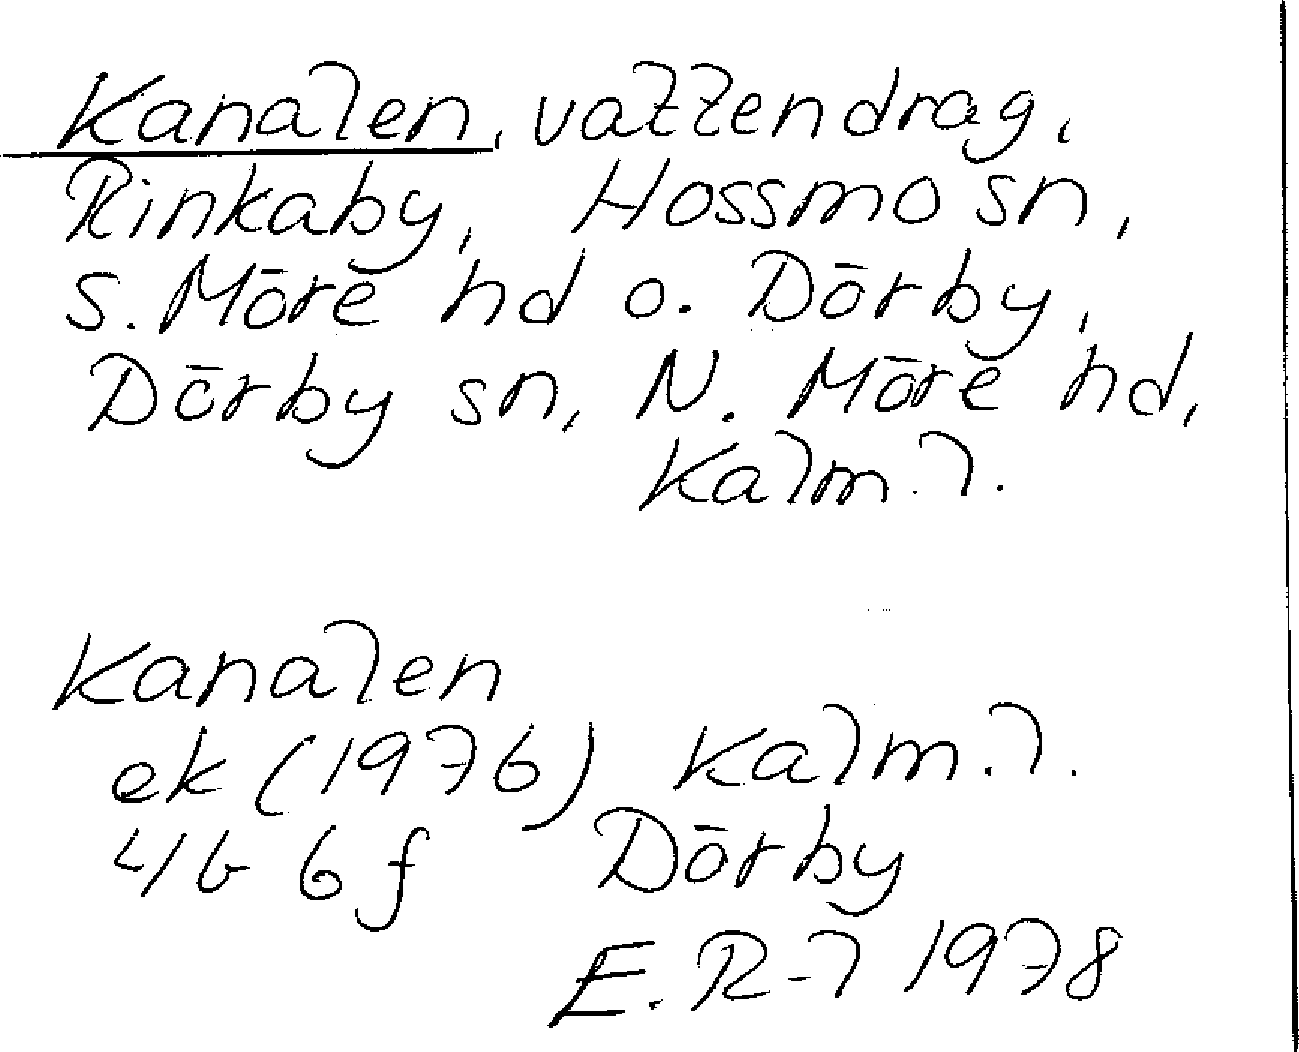 Kanalen, vattendrag,
Rinkaby, Hossmo sn,
S. Möre hd o. Dörby,
Dörby sn, N. Möre hd,
Kalm. l.
Kanalen
ek (1976) Kalm. l.
4b 6f Dörby
E. R-l 1978